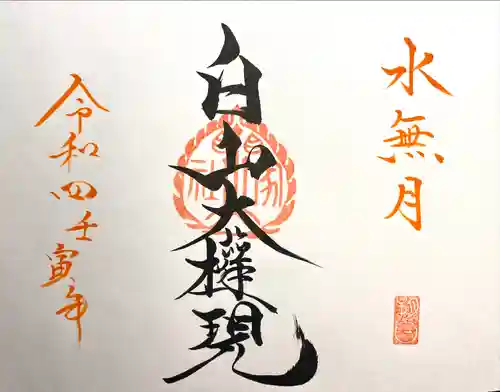 水無月
白山大權現
令和四壬寅年